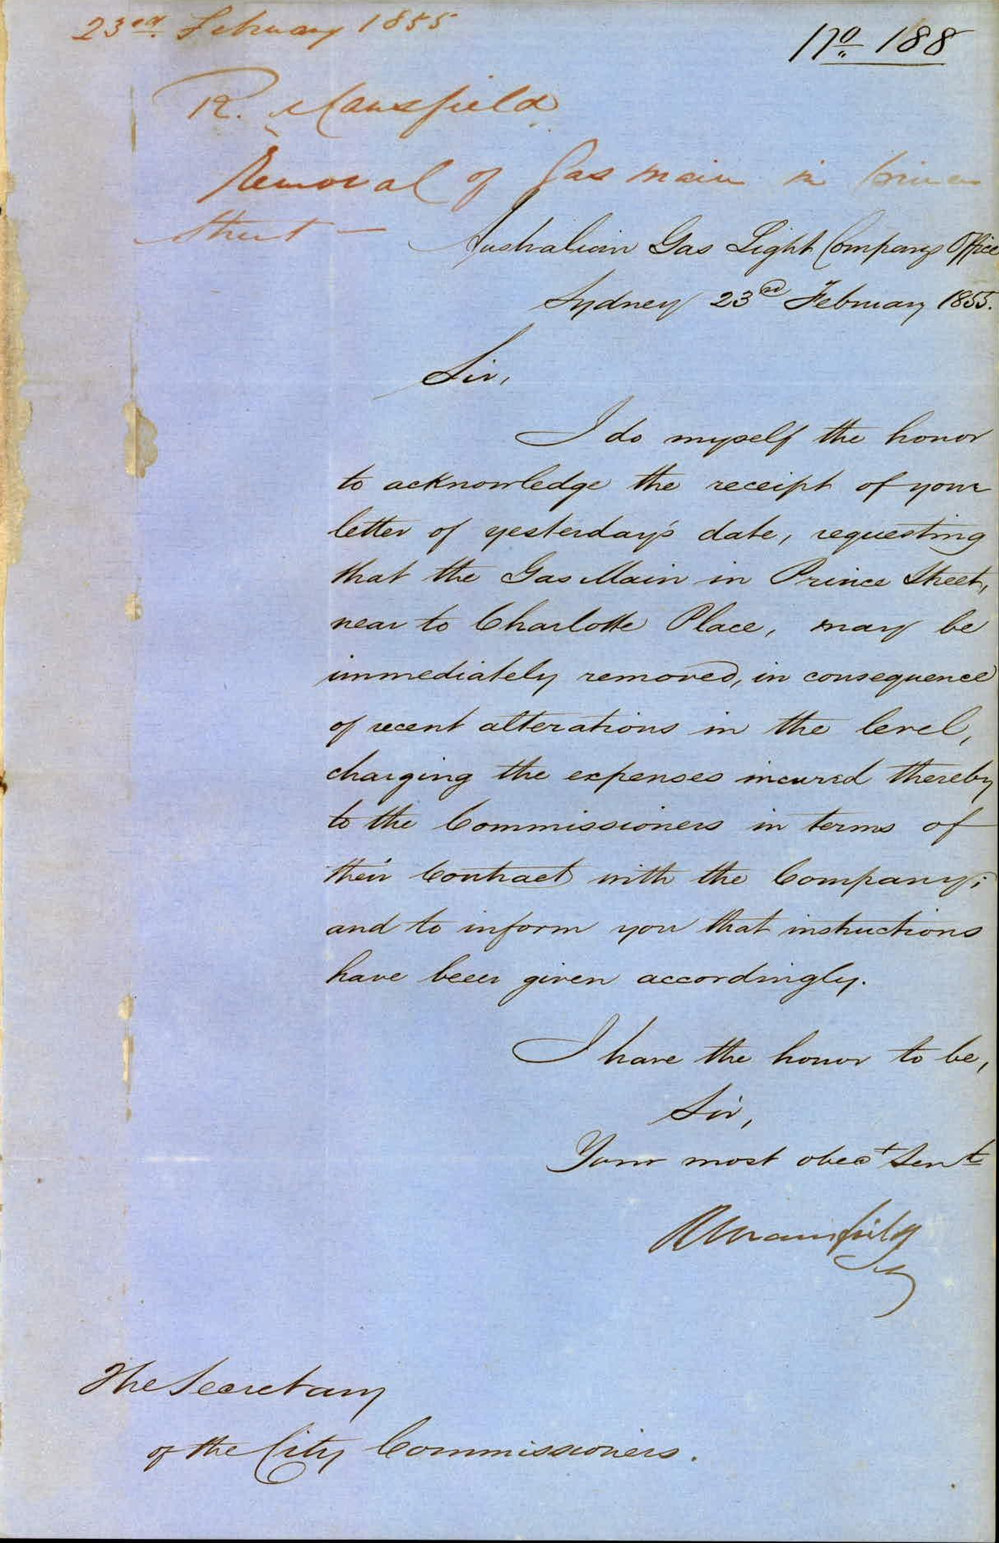 23rd. February 1855
No 188
R. Mansfield
Removal of Gas main in Prince
Street —
Australian Gas Light Company's Office
Sydney 23rd February 1855.
Sir,
I do myself the honor
to acknowledge the receipt of your
letter of yesterday's date, requesting
that the Gas Main in Prince Street,
near to Charlotte Place, may be
immediately removed, in consequence
of recent alterations in the level,
charging the expenses incurred thereby
to the Commissioners in terms of
their Contract with the Company;
and to inform you that instructions
have been given accordingly.
I have the honor to be,
Sir,
Your most obedt Servt
R Mansfield
The Secretary
of the City Commissioners.